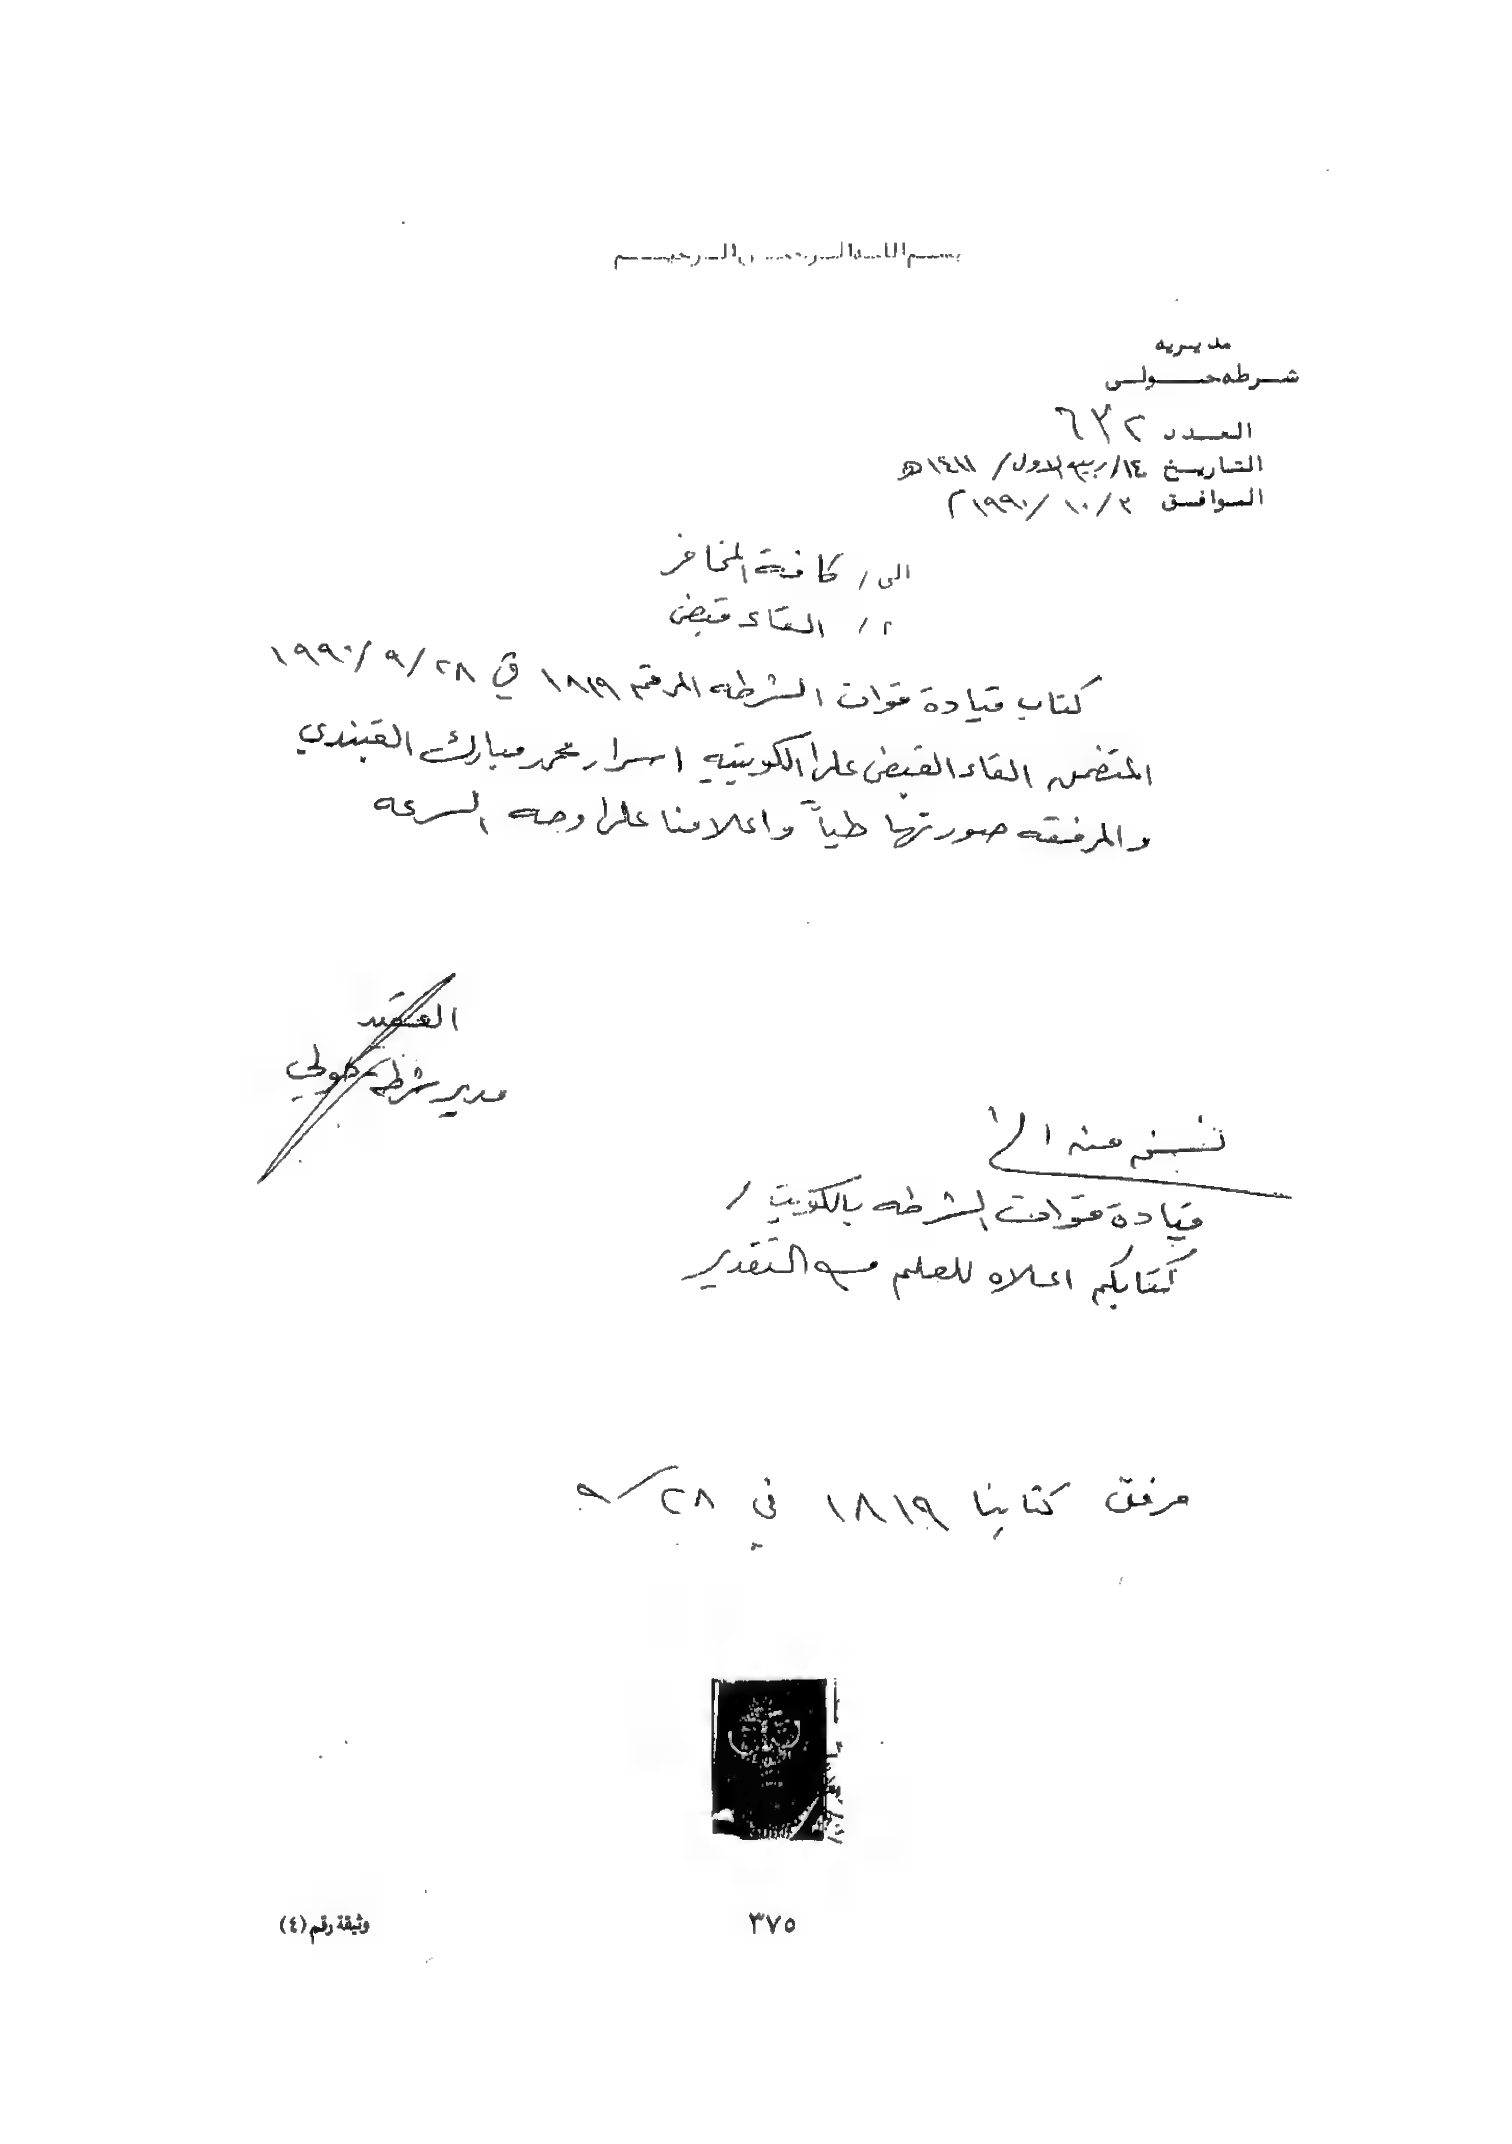 بسم الله الرحمن الرحيم
مديريه
شرطه حولي
العدد ٦٣٢
التاريخ ١٤/ربيع الاول/ ١٤١١هـ
الموافق ٣/ ١٠/ ١٩٩٠م
الى/ كافة المخافر
م/ القاء قبض
كتاب قيادة قوات الشرطه المرقم ١٨١٩ في ٢٨/ ٩/ ١٩٩٠
المتضمن القاء القبض على الكويتيه اسرار محمد مبارك القبندي
والمرفقه صورتها طياً واعلامنا على وجه السرعه
العقيد
مدير شرطة حولي
نسخه منه الى
قيادة قوات الشرطه بالكويت /
كتابكم اعلاه للعلم مع التقدير
مرفق كتابنا ١٨١٩ في ٢٨/ ٩
٣٧٥
وثيقة رقم (٤)